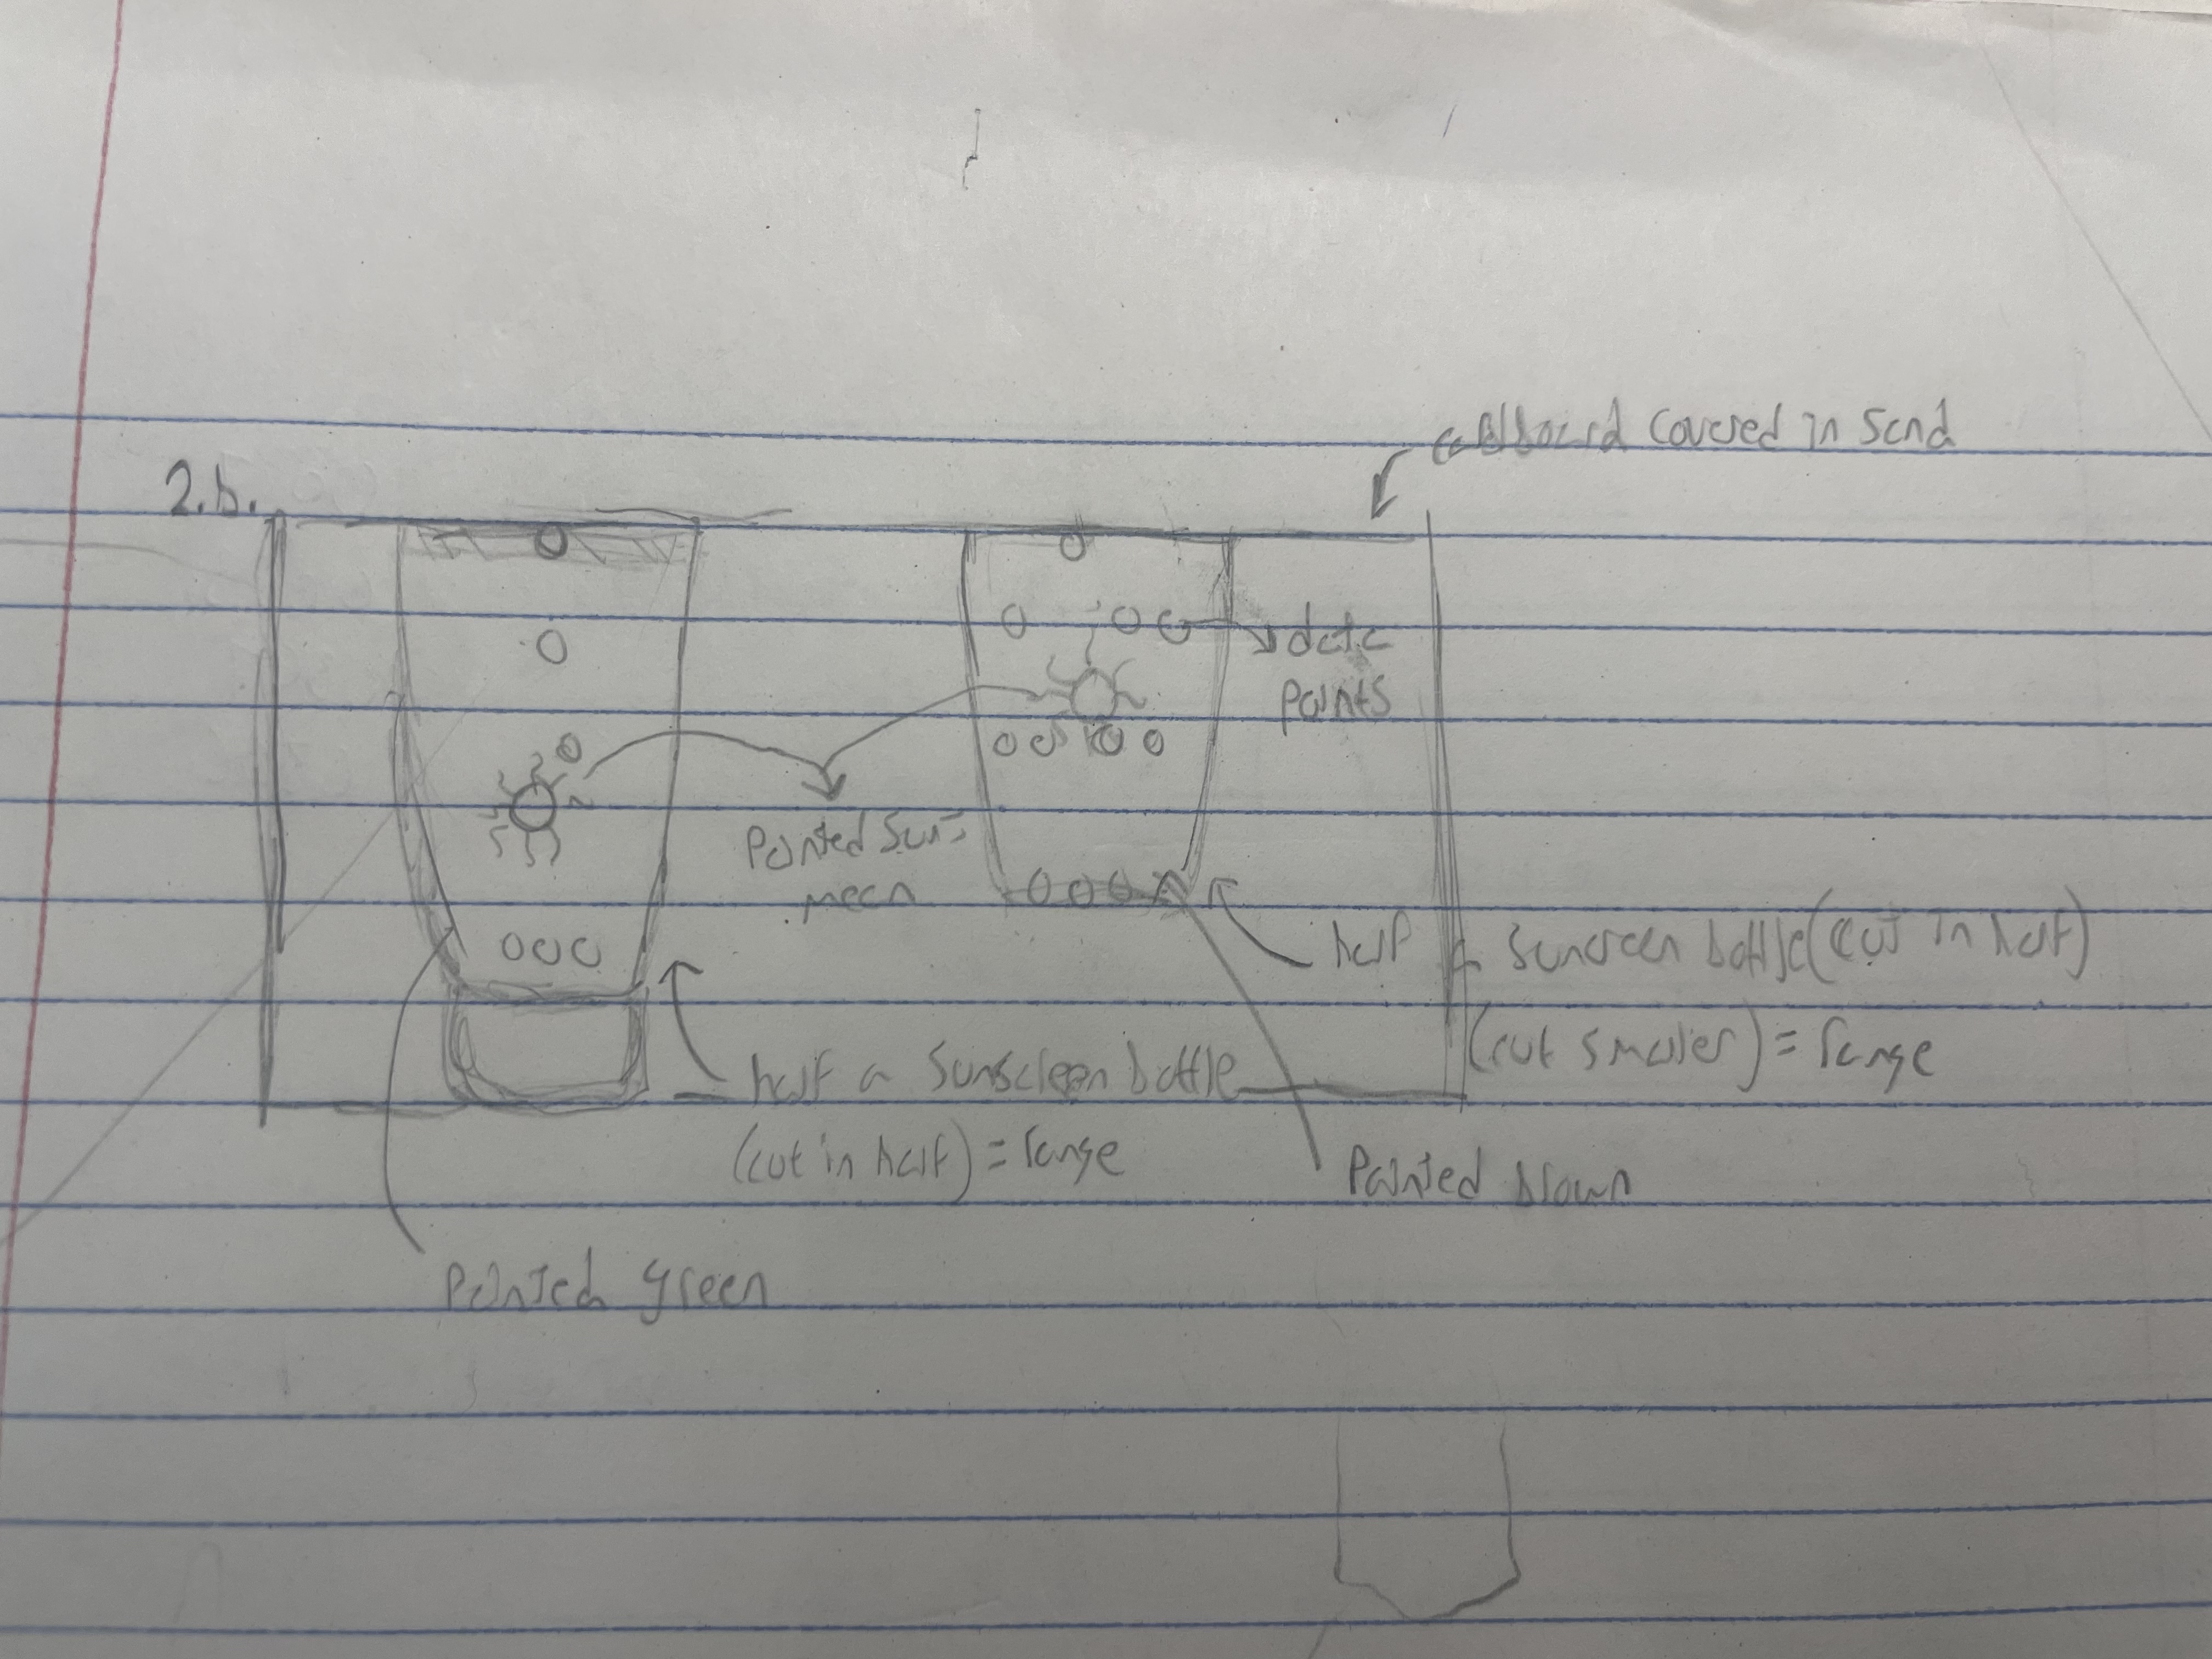 cardboard covered in sand
2.b.
data
points
Painted Sun =
mean
half a sunscreen bottle (cut in half)
(cut smaller) = range
half a sunscreen bottle
(cut in half) = range
Painted brown
Painted green